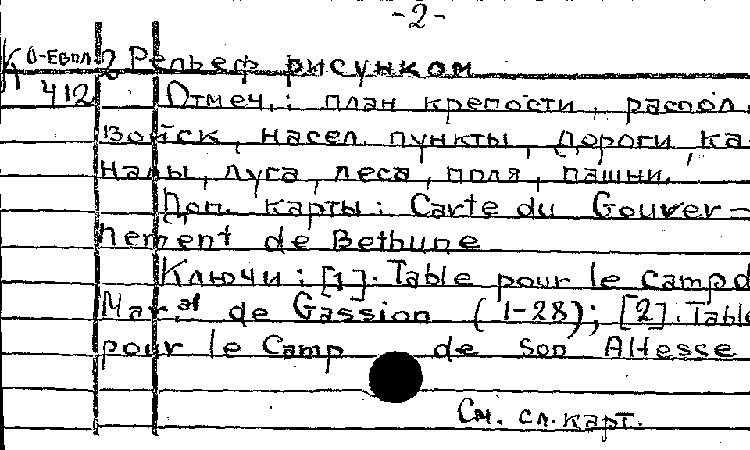 -2-
К О-Евпл. 2 Рельеф рисунком
412 Отмеч.: план крепости, распол.
войск, насел. пункты, дороги, ка-
налы, луга, леса, поля, пашни.
Доп. карты: Carte du Gouver-
nement de Bethune
Ключи: [1]. Table pour le Camp d
Mar.al de Gassion (1-28); [2]. Table
pour le Camp de Son Altesse
См. сл. карт.